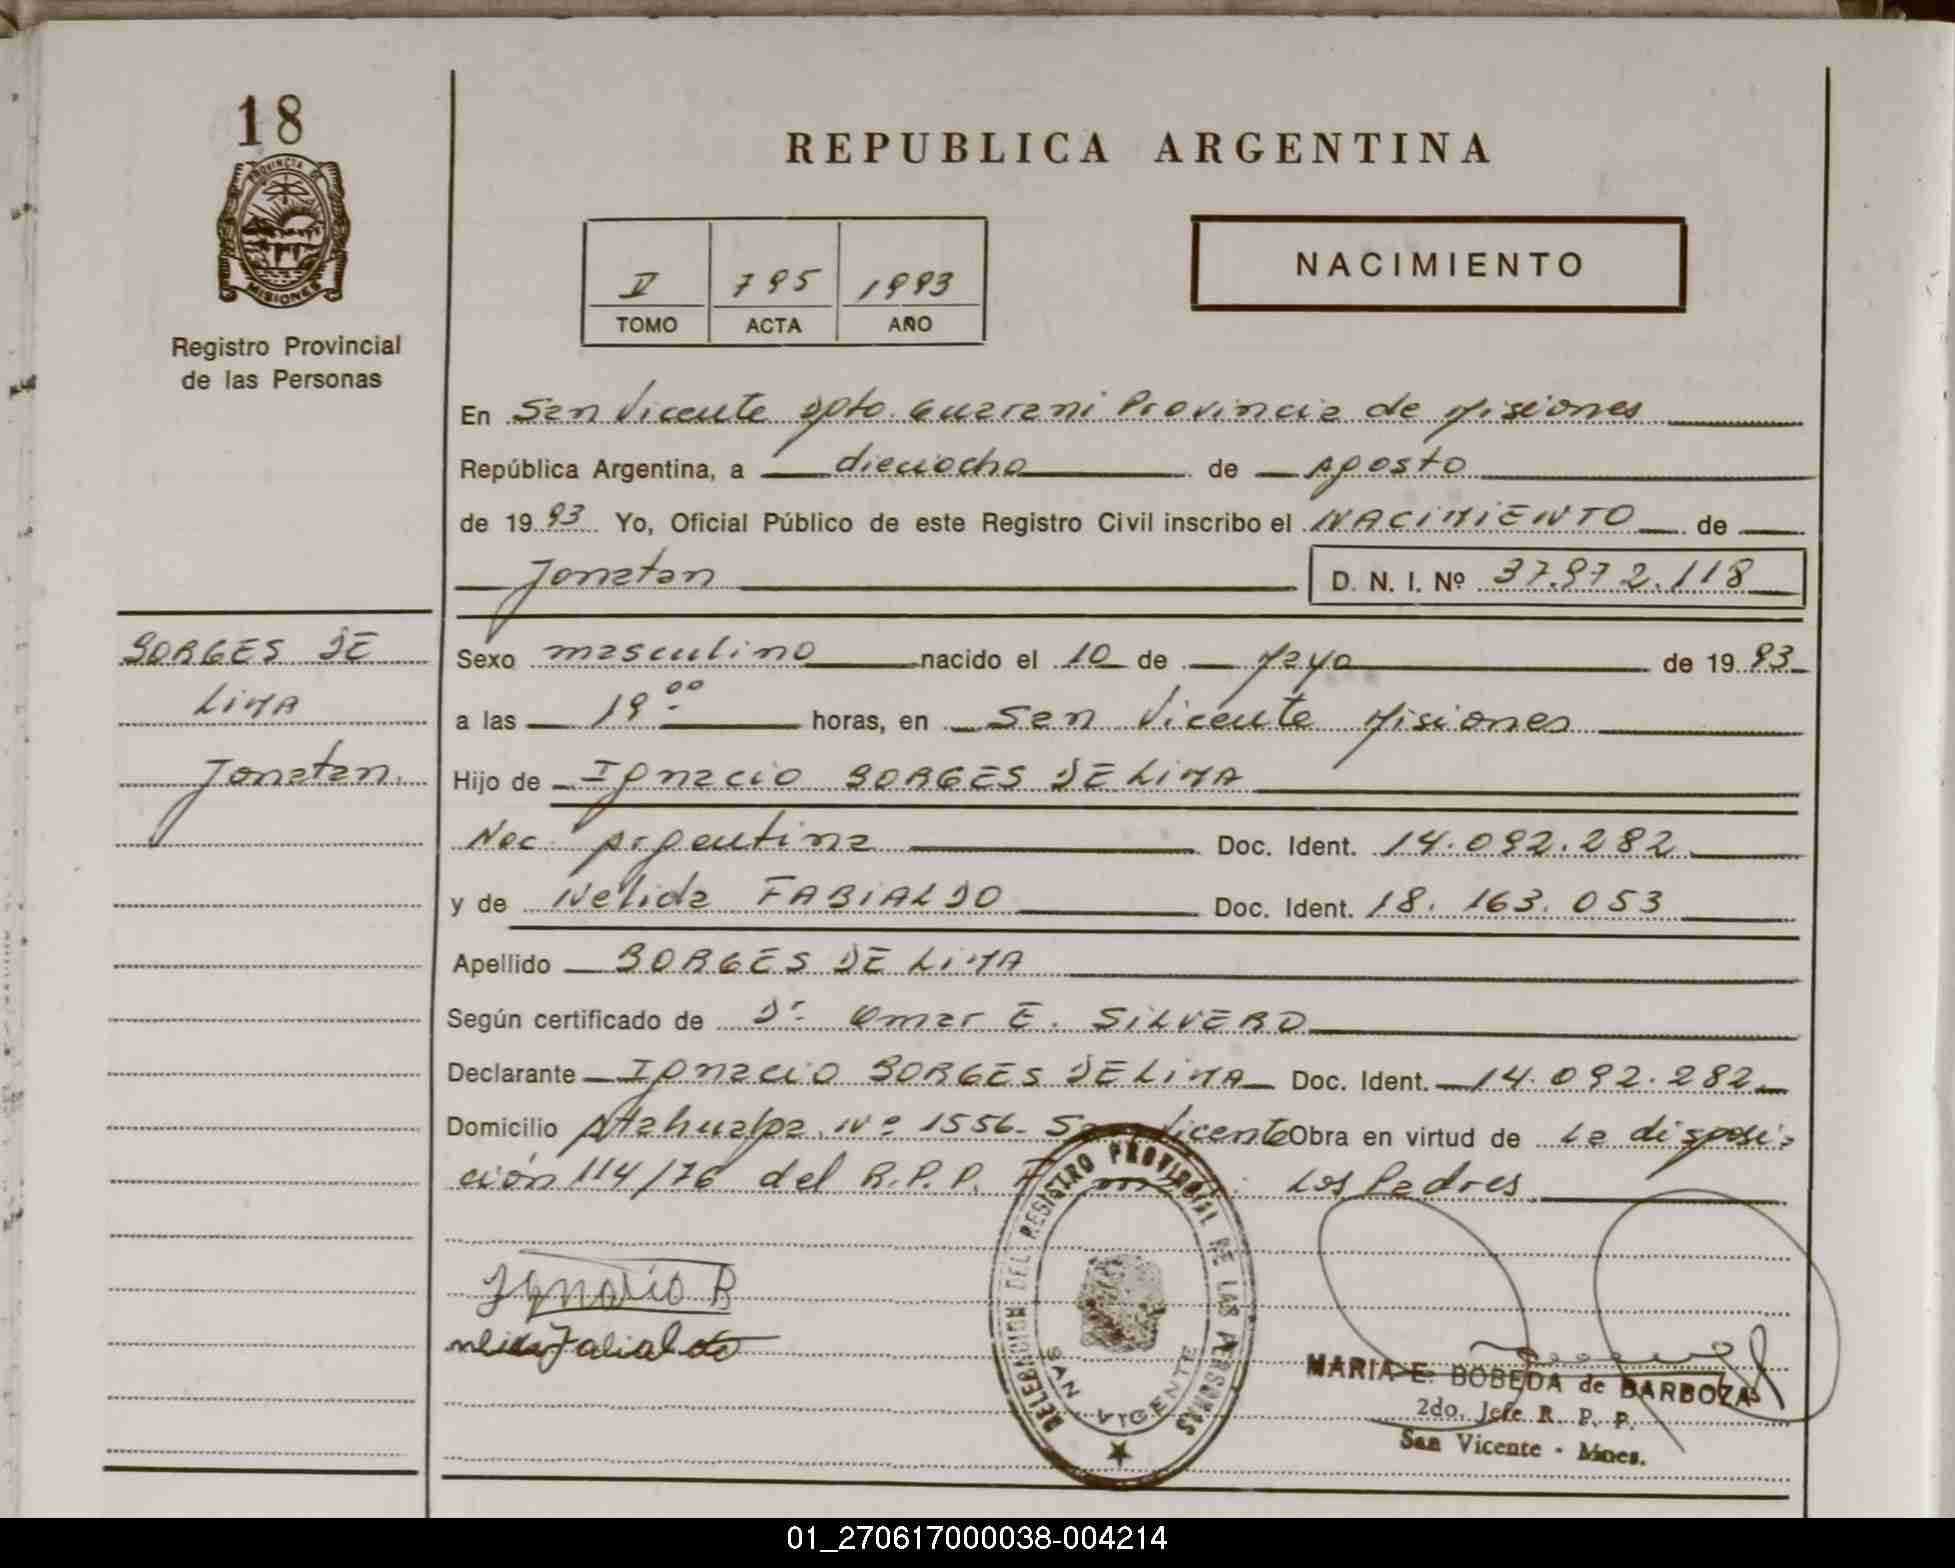 18
PROVINCIA DE
MISIONES
Registro Provincial
de las Personas
REPUBLICA ARGENTINA
V 795 1993
TOMO ACTA AÑO
NACIMIENTO
En San Vicente Dpto. Guarani Provincia de Misiones
República Argentina, a dieciocho de Agosto
de 1993 Yo, Oficial Público de este Registro Civil inscribo el NACIMIENTO de
Jonatan D. N. I. Nº 37.972.118
BORGES DE
LIMA
Jonatan.
Sexo masculino nacido el 10 de Mayo de 1993
a las 19 00 horas, en San Vicente Misiones
Hijo de Ignacio BORGES DE LIMA
Nac. Argentina Doc. Ident. 14.092.282
y de Nelida FABIALDO Doc. Ident. 18.163.053
Apellido BORGES DE LIMA
Según certificado de Dr. Omar E. SILVERO
Declarante Ignacio BORGES DE LIMA Doc. Ident. 14.092.282
Domicilio Atahualpa Nº 1556- San Vicente Obra en virtud de La disposi-
ción 114/76 del R.P.P. Los Padres
Ignacio B
DELEGACION DEL REGISTRO PROVINCIAL DE LAS PERSONAS
SAN VICENTE
MARIA E. BOBEDA de BARBOZA
2do. Jefe R. P. P.
San Vicente - Mnes.
01_270617000038-004214